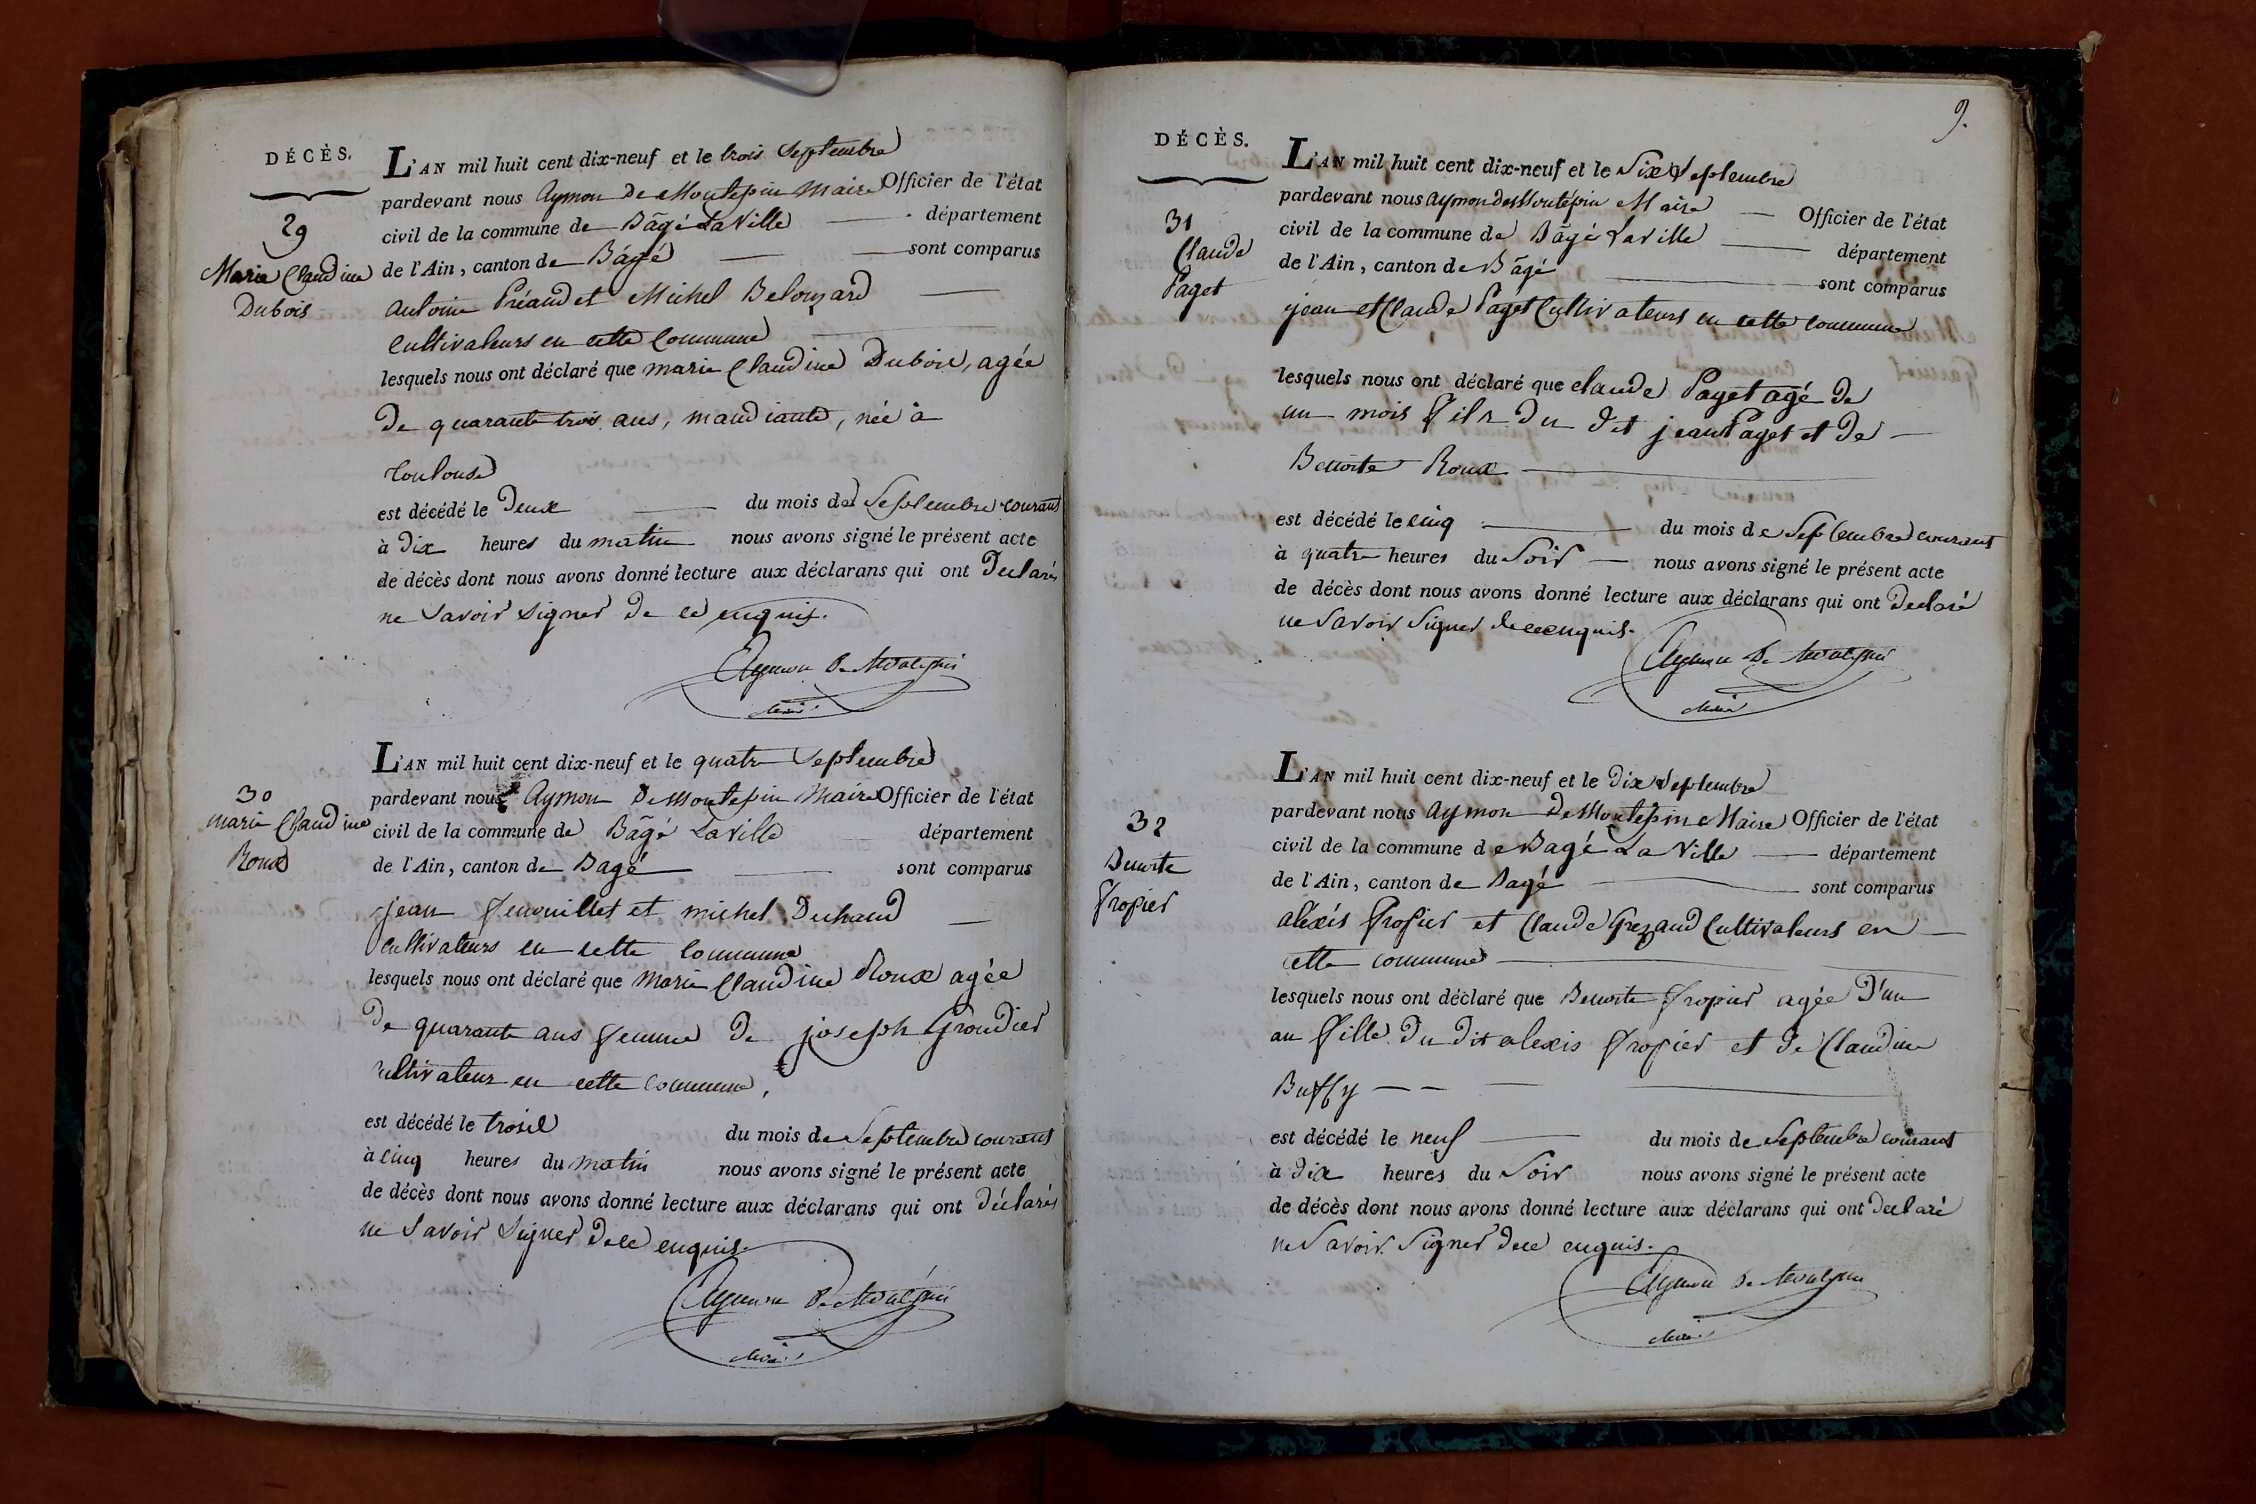 DÉCÈS.
29
Marie Claudine
Dubois
L'AN mil huit cent dix-neuf et le trois Septembre
pardevant nous Aymon De Montepin Maire Officier de l'état
civil de la commune de Bâgé La Ville département
de l'Ain, canton de Bâgé sont comparus
antoine Préaud et Michel Belouzard
cultivateurs en cette Commune
lesquels nous ont déclaré que marie Claudine Dubois, agée
De quarante trois ans, mandiante, née à
Toulouse
est décédé le Deux du mois de Septembre courant
à dix heures du matin nous avons signé le présent acte
de décès dont nous avons donné lecture aux déclarans qui ont Déclarés
ne Savoir Signer De ce enquis.
Aymon De Montepin
Maire
30
marie Claudine
Roux
L'AN mil huit cent dix-neuf et le quatre Septembre
pardevant nous Aymon De Montepin Maire Officier de l'état
civil de la commune de Bâgé La Ville département
de l'Ain, canton de Bagé sont comparus
jean fenouillet et michel Duhaud
Cultivateurs en cette Commune
lesquels nous ont déclaré que Marie Claudine Roux agée
De quarante ans femme De joseph Groudier
Cultivateur en cette Commune,
est décédé le trosie du mois de Septembre courant
à cinq heures du matin nous avons signé le présent acte
de décès dont nous avons donné lecture aux déclarans qui ont Déclarés
ne Savoir Signer De ce enquis.
Aymon De Montepin
Maire
9.
DÉCÈS.
31
Claude
Paget
L'AN mil huit cent dix-neuf et le Six Septembre
pardevant nous aymon De Montépin Maire Officier de l'état
civil de la commune de Bâgé Laville département
de l'Ain, canton de Bâgé sont comparus
jean et Claude Paget Cultivateurs en cette commune
lesquels nous ont déclaré que claude Paget agé de
un mois fils du dit jean Paget et De
Benoite Roux
est décédé le cinq du mois de Septembre courant
à quatre heures du Soir nous avons signé le présent acte
de décès dont nous avons donné lecture aux déclarans qui ont Declaré
ne Savoir Signer de ce enquis.
Aymon De Montepin
Maire
32
Benoite
fropier
L'AN mil huit cent dix-neuf et le Dix Septembre
pardevant nous Aymon De Montepin Maire Officier de l'état
civil de la commune de Bagé La Ville département
de l'Ain, canton de Bagé sont comparus
alexis fropier et Claude Grezaud Cultivateurs en
cette commune
lesquels nous ont déclaré que Benoite fropier agée D'un
an fille Du Dit alexis fropier et de Claudine
Buffy
est décédé le neuf du mois de Septembre courant
à Dix heures du Soir nous avons signé le présent acte
de décès dont nous avons donné lecture aux déclarans qui ont Declaré
ne Savoir Signer De ce enquis.
Aymon De Montepin
Maire